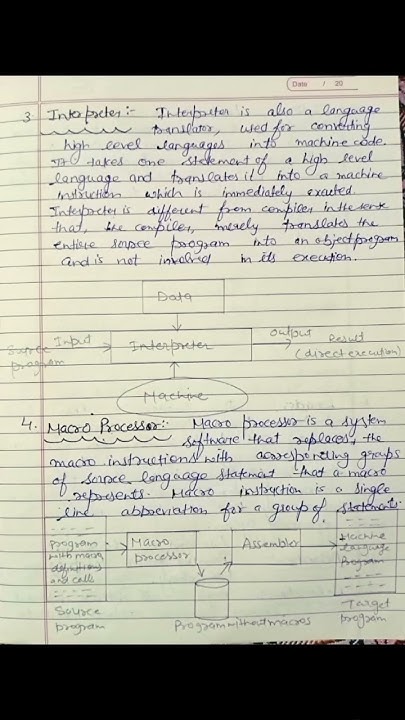 Date / 20
3 Interpreter:- Interpreter is also a language
translator, used for converting
high level languages into machine code.
It takes one statement of a high level
language and translates it into a machine
instruction which is immediately
Interpreter is different from compiler in the
that, the compiler, merely translates the
entire source program into an object program
and is not involved in its execution.
Data
Source program
Input
Interpreter
Output
Result
(direct execution)
Machine
4. Macro Processor:- Macro processor is a system
software that replaces, the
macro instructions with groups
of source language statement that a macro
represents. Macro instruction is a single
line abbreviation for a group of statements.
Program
with macro
definitions
and calls
Macro
processor
Assembler
Machine
language
Program
Source
program
Program without macros
Target
program